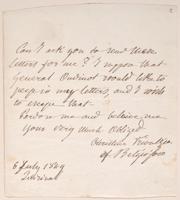 Can I ask you to send these
letters for me? I suppose that
General Oudinot would like to
peep in my letters, and I wish
to escape that.
Pardon me and believe me
Yours very much obliged
Christine Trivulzio
of Belgiojoso
6 July 1849
Quirinal